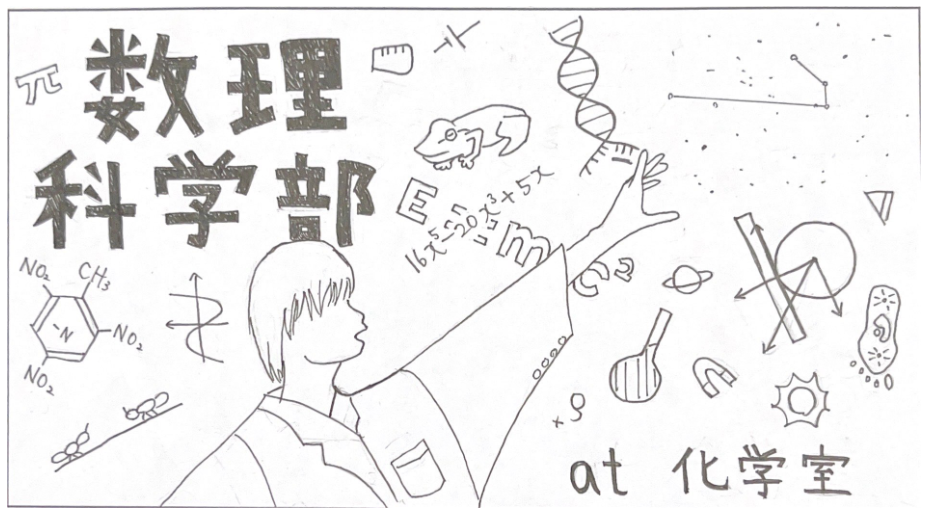 π
数理
科学部
E = mc²
16x⁵-20x³+5x
NO₂
CH₃
NO₂
NO₂
at 化学室